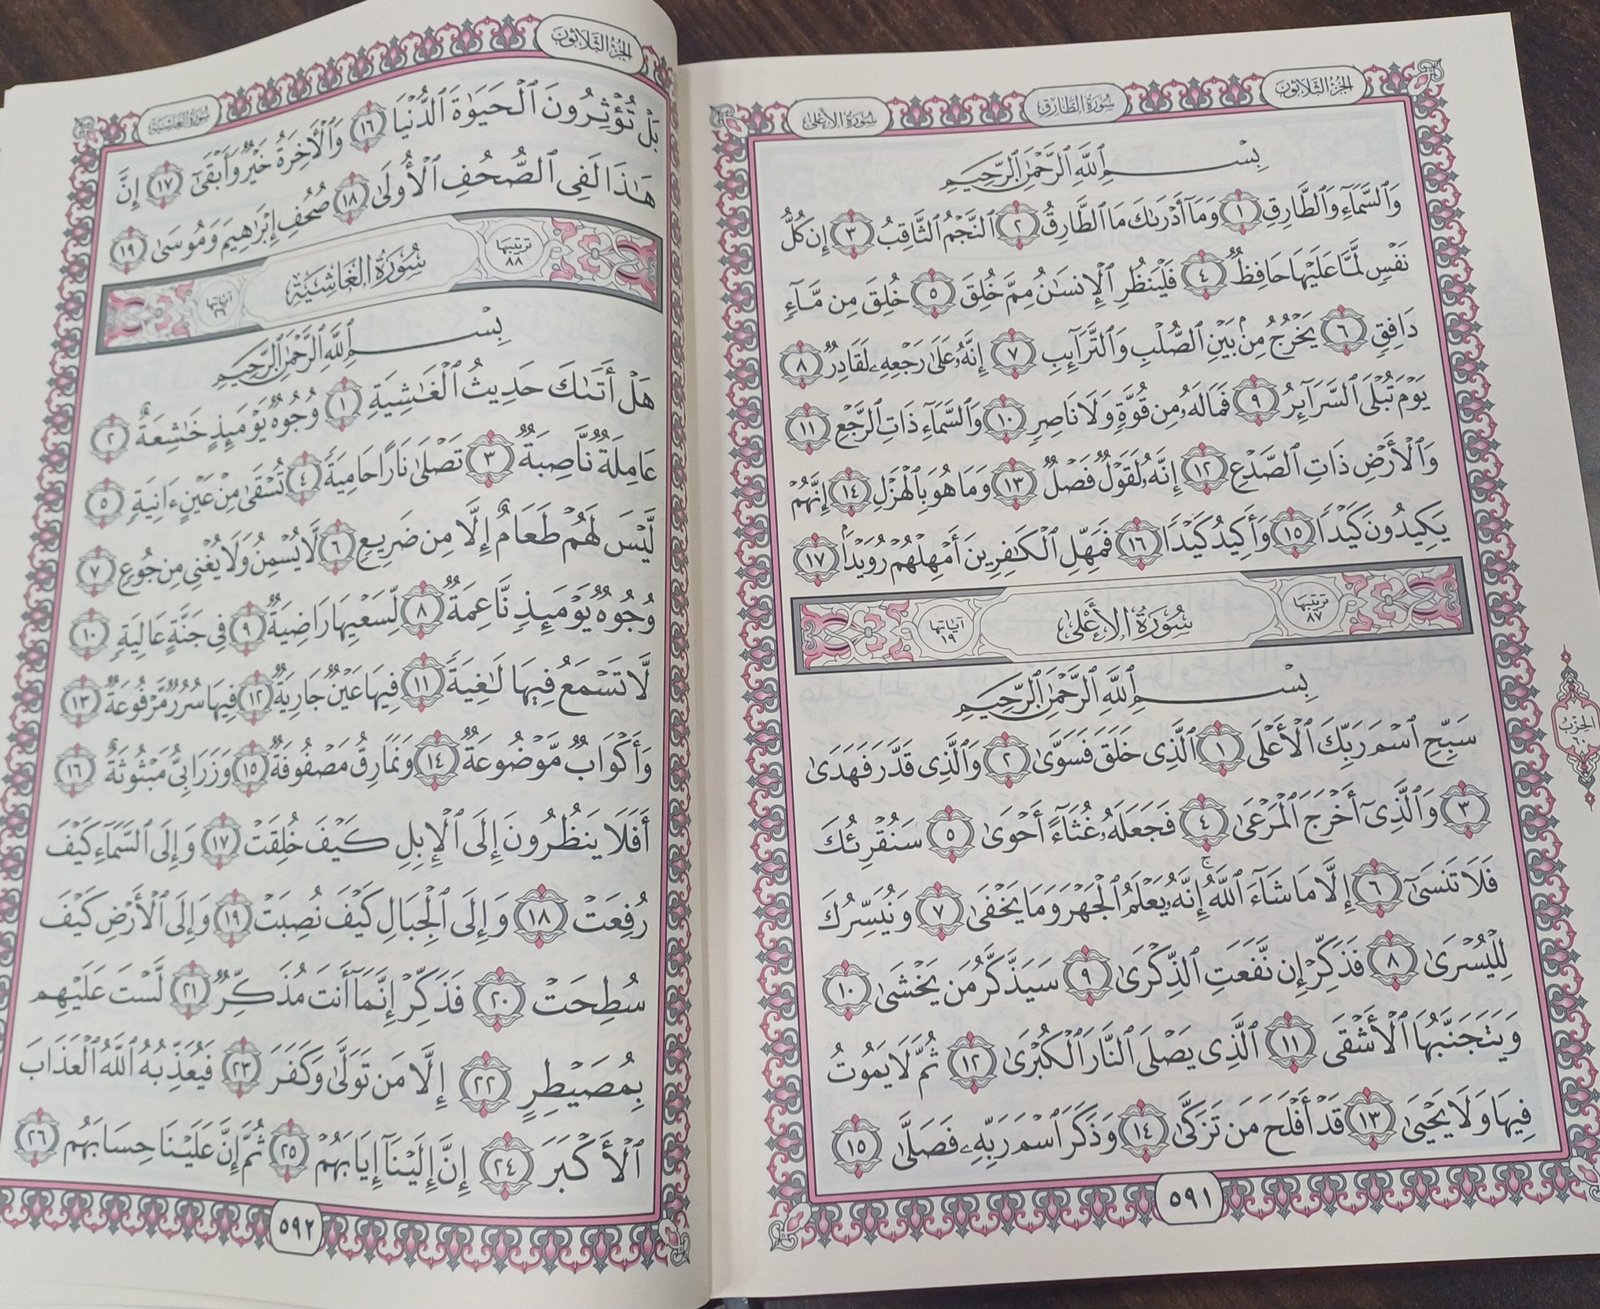 الجزء الثلاثون
سورة الطارق
سورة الأعلى
بِسْمِ ٱللَّهِ ٱلرَّحْمَٰنِ ٱلرَّحِيمِ
وَٱلسَّمَآءِ وَٱلطَّارِقِ ١ وَمَآ أَدْرَىٰكَ مَا ٱلطَّارِقُ ٢ ٱلنَّجْمُ ٱلثَّاقِبُ ٣ إِن كُلُّ
نَفْسٍ لَّمَّا عَلَيْهَا حَافِظٌ ٤ فَلْيَنظُرِ ٱلْإِنسَٰنُ مِمَّ خُلِقَ ٥ خُلِقَ مِن مَّآءٍ
دَافِقٍ ٦ يَخْرُجُ مِنۢ بَيْنِ ٱلصُّلْبِ وَٱلتَّرَآئِبِ ٧ إِنَّهُۥ عَلَىٰ رَجْعِهِۦ لَقَادِرٌ ٨
يَوْمَ تُبْلَى ٱلسَّرَآئِرُ ٩ فَمَا لَهُۥ مِن قُوَّةٍ وَلَا نَاصِرٍ ١٠ وَٱلسَّمَآءِ ذَاتِ ٱلرَّجْعِ ١١
وَٱلْأَرْضِ ذَاتِ ٱلصَّدْعِ ١٢ إِنَّهُۥ لَقَوْلٌ فَصْلٌ ١٣ وَمَا هُوَ بِٱلْهَزْلِ ١٤ إِنَّهُمْ
يَكِيدُونَ كَيْدًا ١٥ وَأَكِيدُ كَيْدًا ١٦ فَمَهِّلِ ٱلْكَٰفِرِينَ أَمْهِلْهُمْ رُوَيْدًۢا ١٧
ترتيبها ٨٧
سورة الأعلى
آياتها ١٩
بِسْمِ ٱللَّهِ ٱلرَّحْمَٰنِ ٱلرَّحِيمِ
سَبِّحِ ٱسْمَ رَبِّكَ ٱلْأَعْلَى ١ ٱلَّذِى خَلَقَ فَسَوَّىٰ ٢ وَٱلَّذِى قَدَّرَ فَهَدَىٰ
٣ وَٱلَّذِىٓ أَخْرَجَ ٱلْمَرْعَىٰ ٤ فَجَعَلَهُۥ غُثَآءً أَحْوَىٰ ٥ سَنُقْرِئُكَ
فَلَا تَنسَىٰٓ ٦ إِلَّا مَا شَآءَ ٱللَّهُ ۚ إِنَّهُۥ يَعْلَمُ ٱلْجَهْرَ وَمَا يَخْفَىٰ ٧ وَنُيَسِّرُكَ
لِلْيُسْرَىٰ ٨ فَذَكِّرْ إِن نَّفَعَتِ ٱلذِّكْرَىٰ ٩ سَيَذَّكَّرُ مَن يَخْشَىٰ ١٠
وَيَتَجَنَّبُهَا ٱلْأَشْقَى ١١ ٱلَّذِى يَصْلَى ٱلنَّارَ ٱلْكُبْرَىٰ ١٢ ثُمَّ لَا يَمُوتُ
فِيهَا وَلَا يَحْيَىٰ ١٣ قَدْ أَفْلَحَ مَن تَزَكَّىٰ ١٤ وَذَكَرَ ٱسْمَ رَبِّهِۦ فَصَلَّىٰ ١٥
الحزب ٦٠
٥٩١
الجزء الثلاثون
سورة الغاشية
بَلْ تُؤْثِرُونَ ٱلْحَيَوٰةَ ٱلدُّنْيَا ١٦ وَٱلْأَخِرَةُ خَيْرٌ وَأَبْقَىٰٓ ١٧ إِنَّ
هَٰذَا لَفِى ٱلصُّحُفِ ٱلْأُولَىٰ ١٨ صُحُفِ إِبْرَٰهِيمَ وَمُوسَىٰ ١٩
ترتيبها ٨٨
سورة الغاشية
آياتها ٢٦
بِسْمِ ٱللَّهِ ٱلرَّحْمَٰنِ ٱلرَّحِيمِ
هَلْ أَتَىٰكَ حَدِيثُ ٱلْغَٰشِيَةِ ١ وُجُوهٌ يَوْمَئِذٍ خَٰشِعَةٌ ٢
عَامِلَةٌ نَّاصِبَةٌ ٣ تَصْلَىٰ نَارًا حَامِيَةً ٤ تُسْقَىٰ مِنْ عَيْنٍ ءَانِيَةٍ ٥
لَّيْسَ لَهُمْ طَعَامٌ إِلَّا مِن ضَرِيعٍ ٦ لَّا يُسْمِنُ وَلَا يُغْنِى مِن جُوعٍ ٧
وُجُوهٌ يَوْمَئِذٍ نَّاعِمَةٌ ٨ لِّسَعْيِهَا رَاضِيَةٌ ٩ فِى جَنَّةٍ عَالِيَةٍ ١٠
لَّا تَسْمَعُ فِيهَا لَٰغِيَةً ١١ فِيهَا عَيْنٌ جَارِيَةٌ ١٢ فِيهَا سُرُرٌ مَّرْفُوعَةٌ ١٣
وَأَكْوَابٌ مَّوْضُوعَةٌ ١٤ وَنَمَارِقُ مَصْفُوفَةٌ ١٥ وَزَرَابِىُّ مَبْثُوثَةٌ ١٦
أَفَلَا يَنظُرُونَ إِلَى ٱلْإِبِلِ كَيْفَ خُلِقَتْ ١٧ وَإِلَى ٱلسَّمَآءِ كَيْفَ
رُفِعَتْ ١٨ وَإِلَى ٱلْجِبَالِ كَيْفَ نُصِبَتْ ١٩ وَإِلَى ٱلْأَرْضِ كَيْفَ
سُطِحَتْ ٢٠ فَذَكِّرْ إِنَّمَآ أَنتَ مُذَكِّرٌ ٢١ لَّسْتَ عَلَيْهِم
بِمُصَيْطِرٍ ٢٢ إِلَّا مَن تَوَلَّىٰ وَكَفَرَ ٢٣ فَيُعَذِّبُهُ ٱللَّهُ ٱلْعَذَابَ
ٱلْأَكْبَرَ ٢٤ إِنَّ إِلَيْنَآ إِيَابَهُمْ ٢٥ ثُمَّ إِنَّ عَلَيْنَا حِسَابَهُم ٢٦
٥٩٢